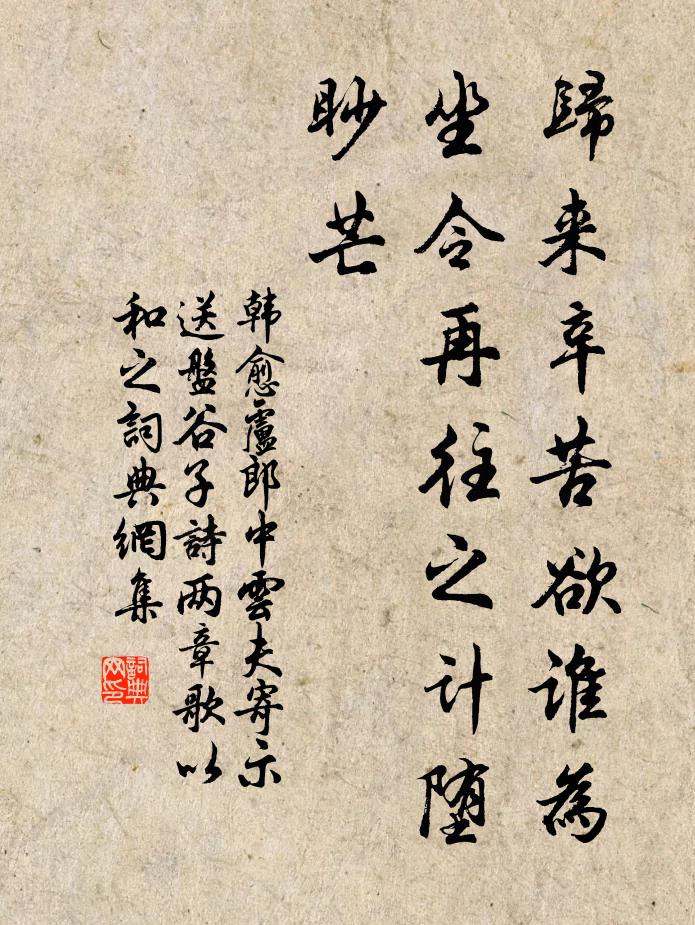 歸来辛苦欲誰為
坐令再往之计堕
眇芒
韩愈盧郎中雲夫寄示
送盤谷子詩两章歌以
和之詞典網集
詞典
网印